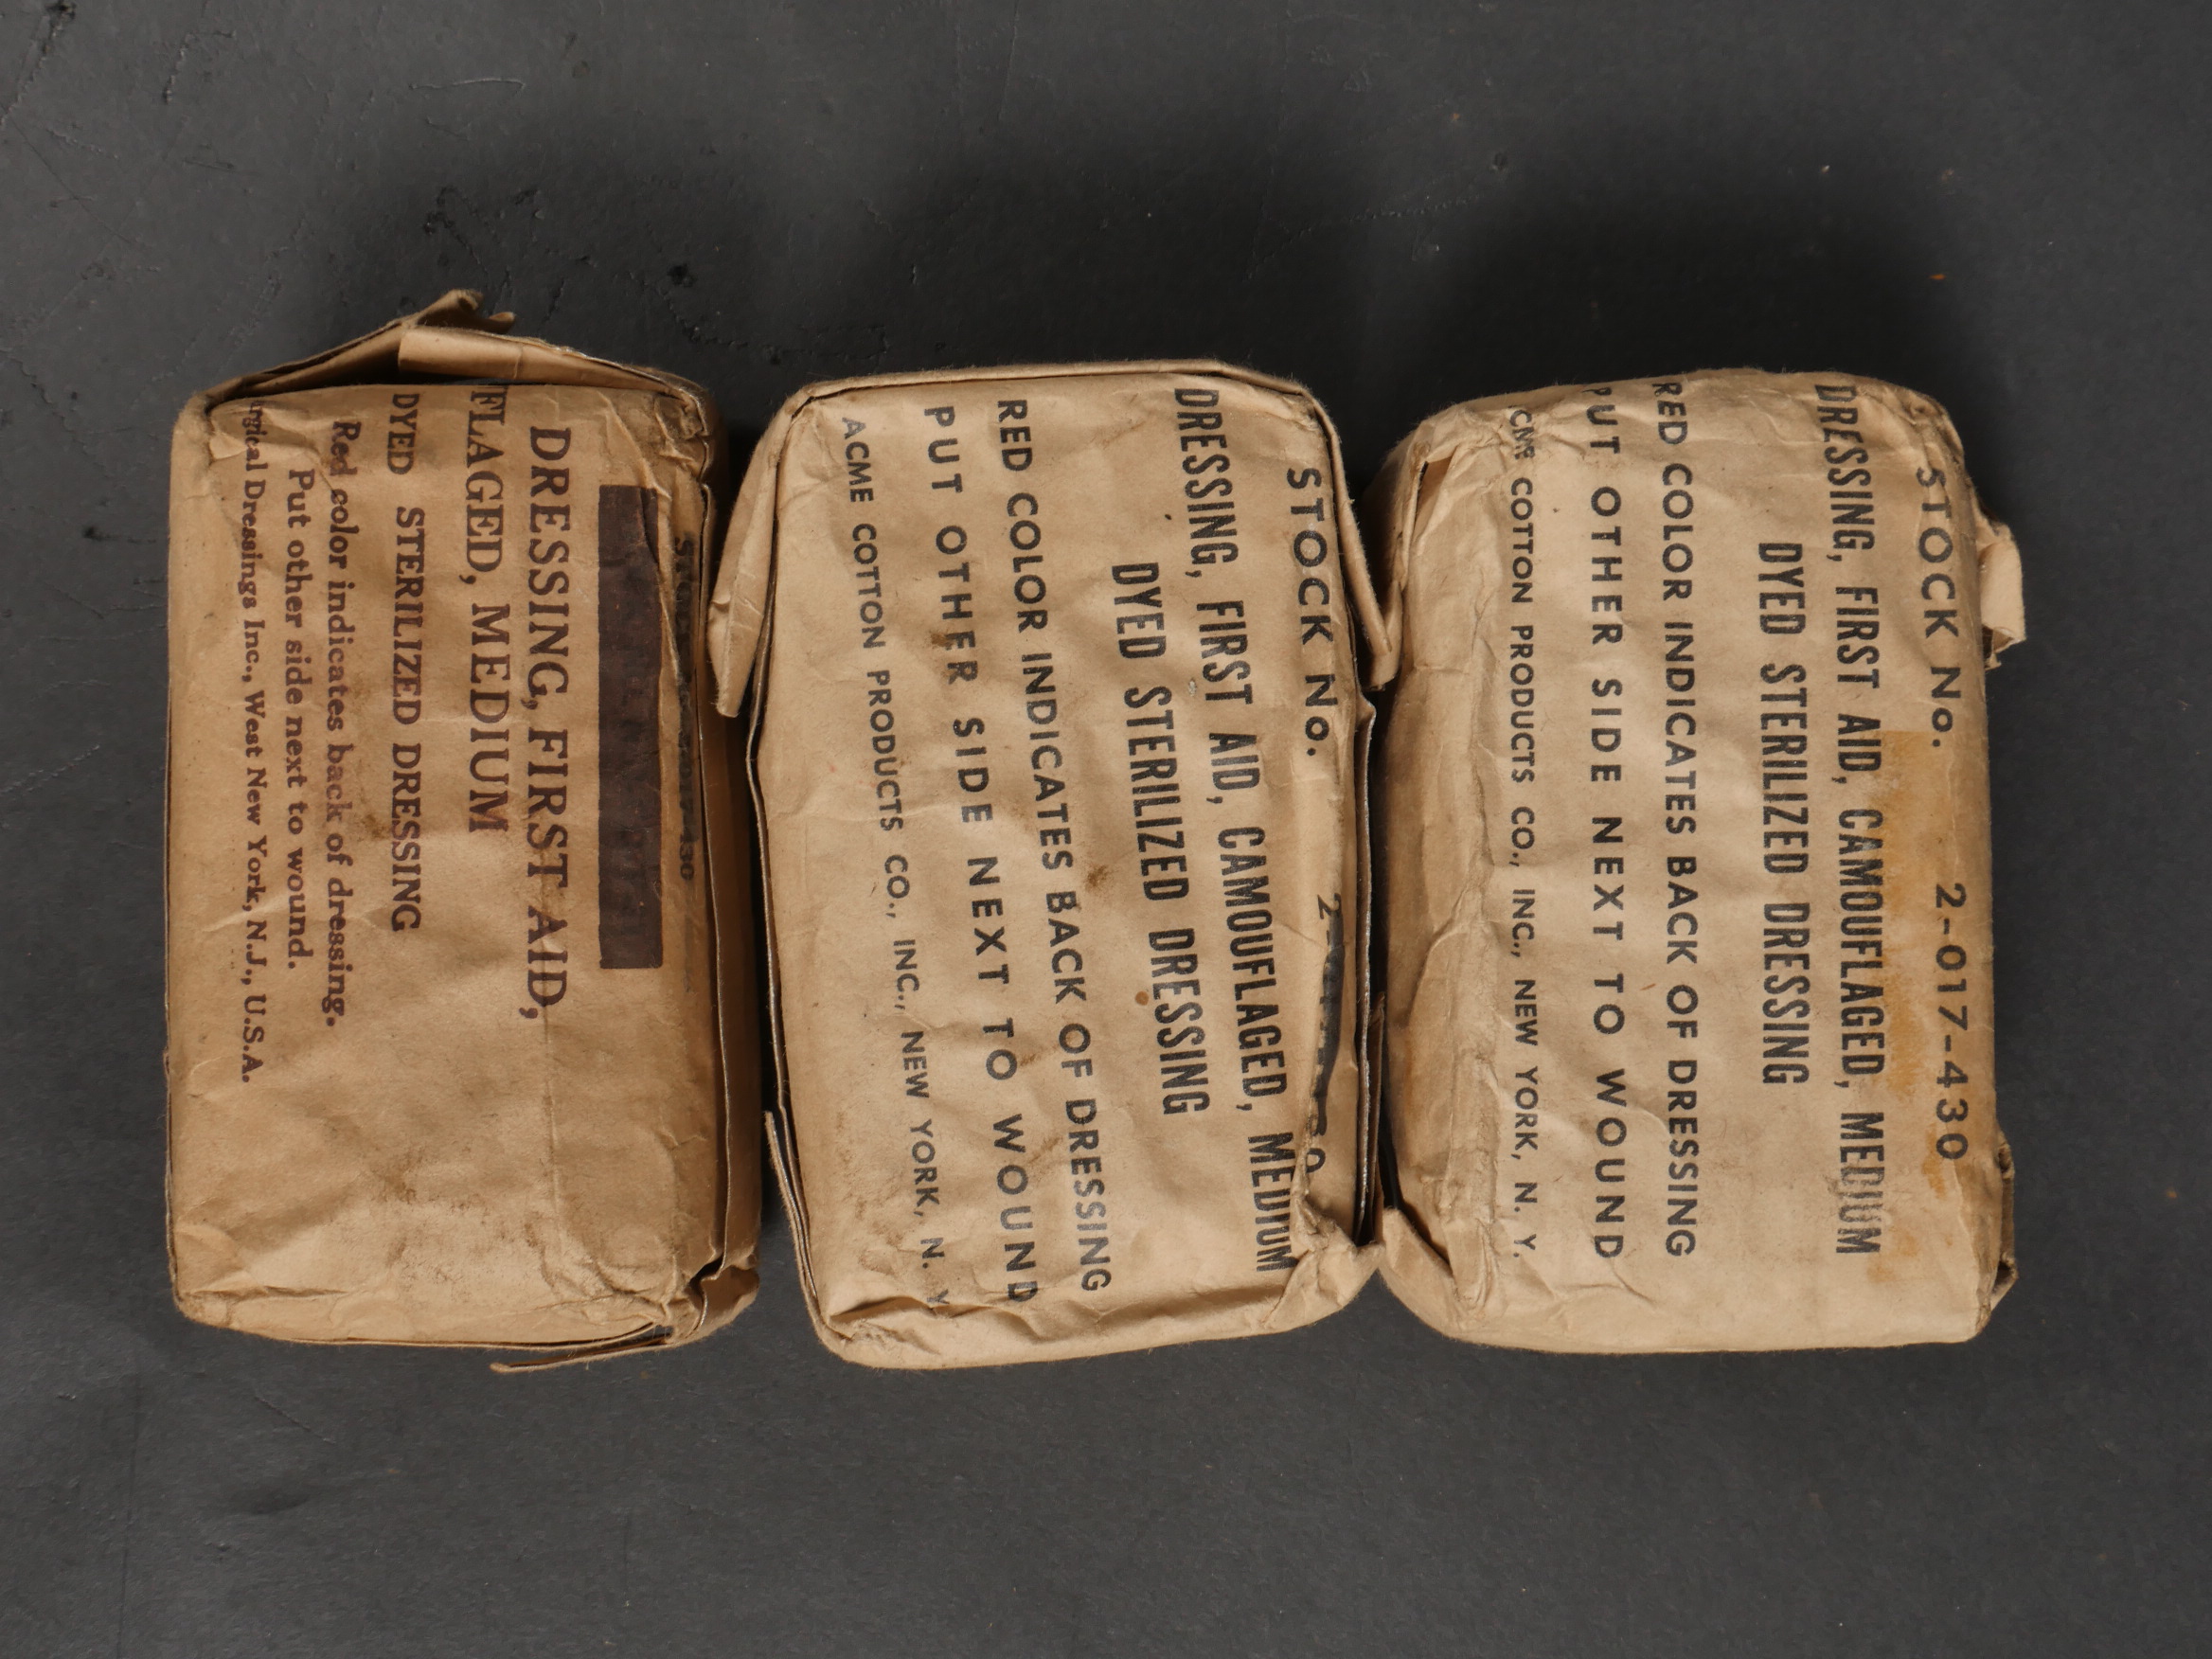 DRESSING, FIRST AID,
FLAGED, MEDIUM
DYED STERILIZED DRESSING
Red color indicates back of dressing.
Put other side next to wound.
Dressings Inc., West New York, N.J., U.S.A.
STOCK No.
DRESSING, FIRST AID, CAMOUFLAGED, MEDIUM
DYED STERILIZED DRESSING
RED COLOR INDICATES BACK OF DRESSING
PUT OTHER SIDE NEXT TO WOUND
ACME COTTON PRODUCTS CO., INC., NEW YORK, N. Y
STOCK No. 2-017-430
DRESSING, FIRST AID, CAMOUFLAGED, MEDIUM
DYED STERILIZED DRESSING
RED COLOR INDICATES BACK OF DRESSING
PUT OTHER SIDE NEXT TO WOUND
CME COTTON PRODUCTS CO., INC., NEW YORK, N. Y.